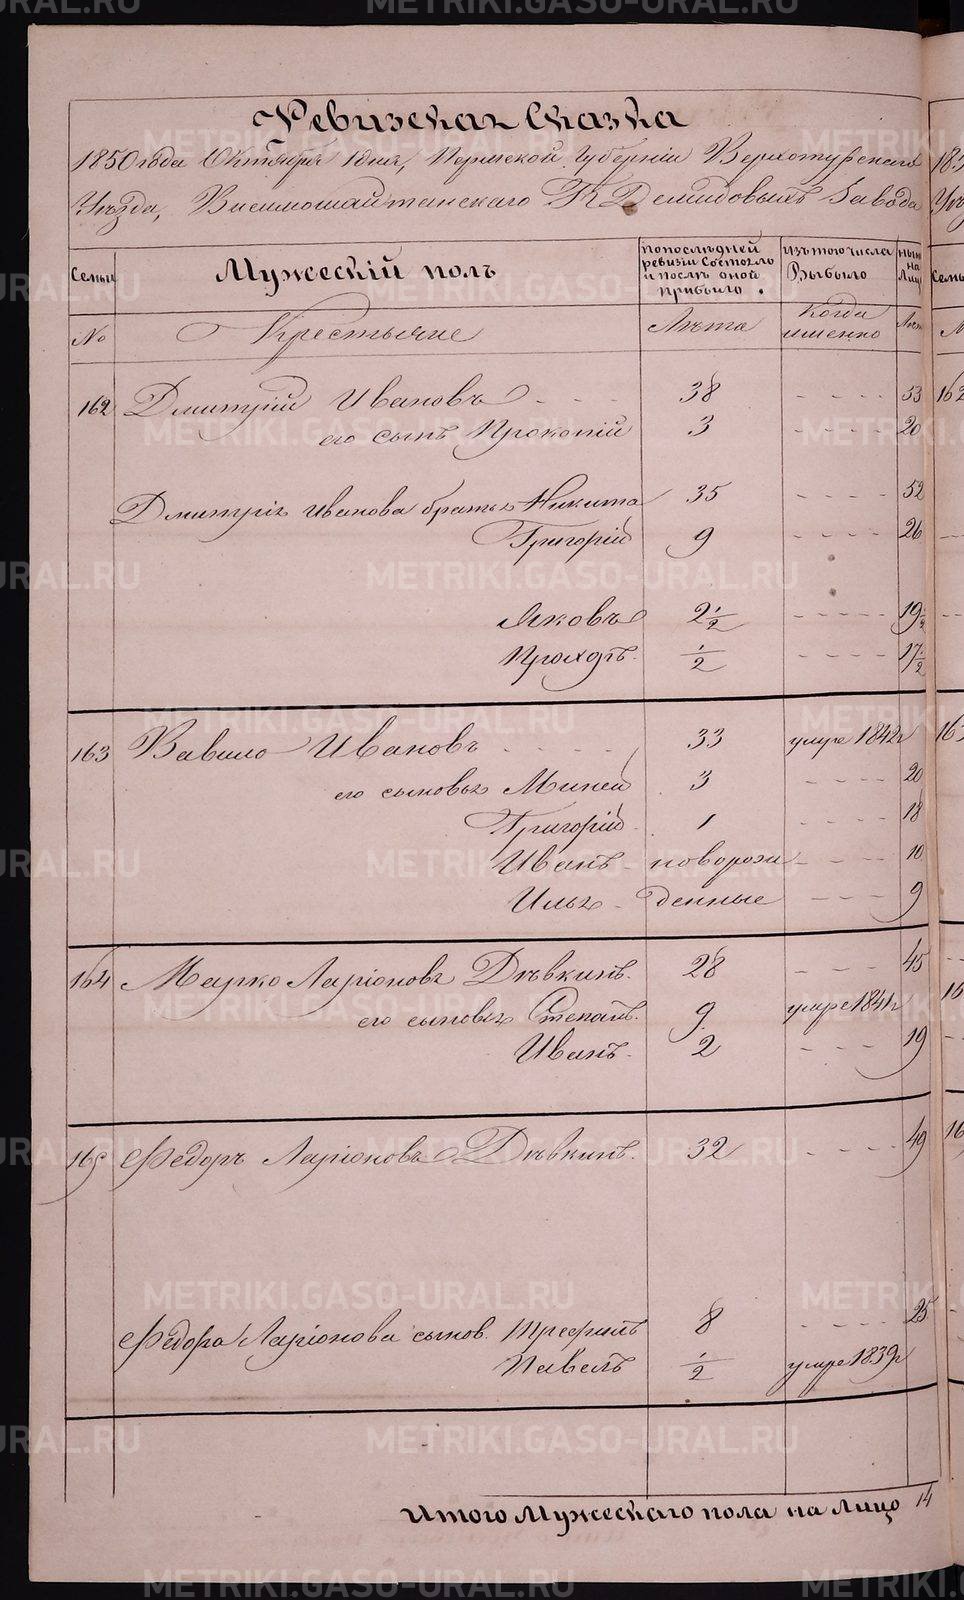 Ревизская Сказка
1850 года Октября 1 дня, Пермской Губернии Верхотурскаго
Уезда, Висимошайтанскаго Н Демидовыхъ Завода
Семьи
Мужескiй полъ
По последней ревизiи Состояло и послѣ оной прибыло.
Изъ того числа Выбыло
Ныне на Лицо
№
Крестьяне
Лѣта
Когда именно
Лѣт
162 Дмитрiй Ивановъ - - - 38 - - - - 53
его сынъ Прокопiй 3 - - - - 20
Дмитрiя Иванова братья Никита 35 - - - - 52
Григорiй 9 - - - - 26
Яковъ 2 1/2 - - - - 19 1/2
1/2 - - - - 17 1/2
163 Вавило Ивановъ - - - - 33 умре 1842 г
его сыновья Миней 3 - - - - 20
Григорiй 1 - - - - 18
Иванъ новорож - - - - 10
Илья денные - - - 9
164 Марко Ларiоновъ Дѣвкинъ. 28 - - - - 45
его сыновья Степанъ. 9 умре 1841 г
Иванъ. 2 - - - - 19
165 Федоръ Ларiоновъ Дѣвкинъ. 32 - - - - 49
Федора Ларiонова сынов. Трефилъ 8 - - - - 25
Павелъ 1/2 умре 1839 г
Итого Мужескаго пола на Лицо 14
METRIKI.GASO-URAL.RU